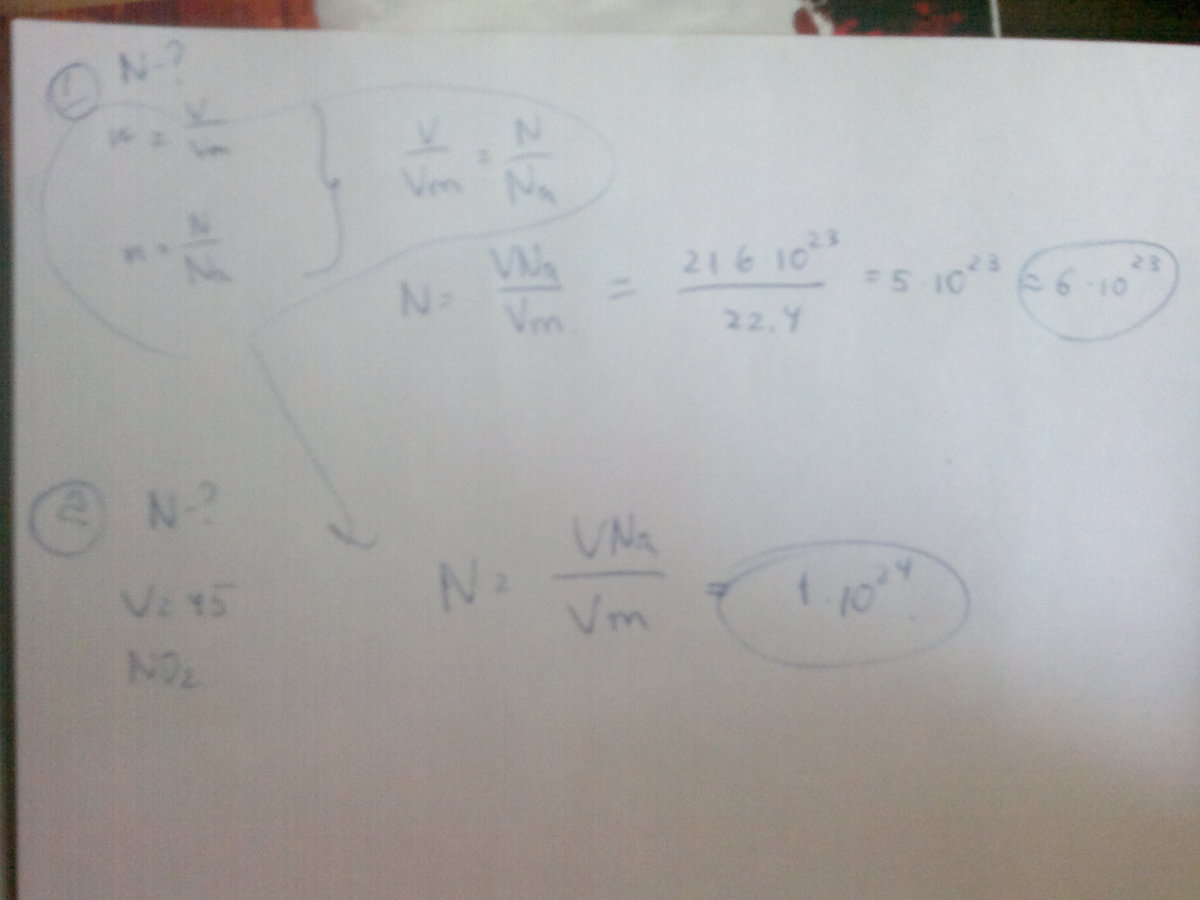 ① N-?
n = V/Vm
n = N/Na
V/Vm = N/Na
N = VNa/Vm = 21 6·10²³/22,4 = 5·10²³ ≈ 6·10²³
② N-?
V = 45
NO₂
N = VNa/Vm = 1·10²⁴